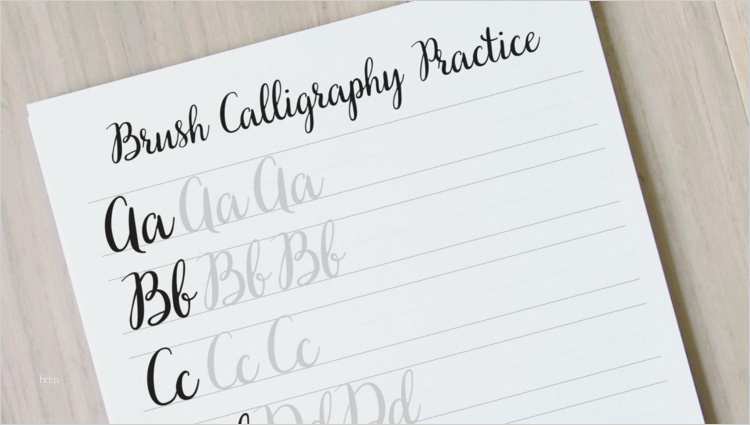 Brush Calligraphy Practice
Aa Aa Aa
Bb Bb Bb
Cc Cc Cc
Dd Dd